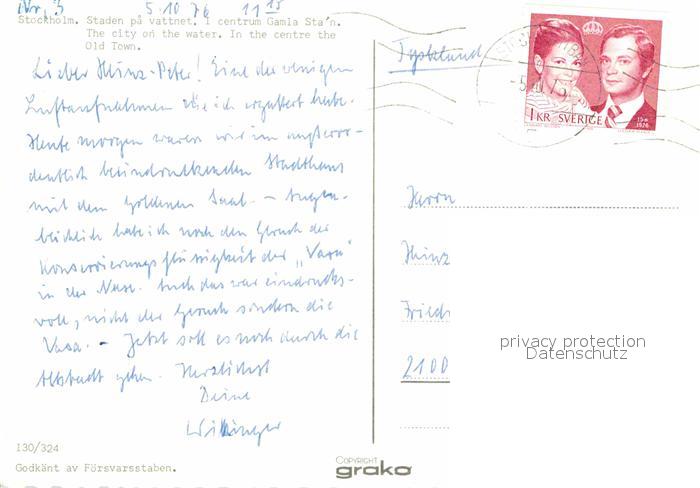 Nr. 3 5.10.76 11 15
Stockholm. Staden på vattnet. I centrum Gamla Sta'n.
The city on the water. In the centre the
Old Town.
Lieber Heinz-Peter! Eine der wenigen
Luftaufnahmen die ich ergattert habe.
Heute morgen waren wir im außeror-
dentlich beeindruckenden Stadthaus
mit dem Goldenen Saal. – Augen-
blicklich habe ich noch den Geruch der
Konservierungsflüssigkeit der "Vasa"
in der Nase. Auch das war eindrucks-
voll, nicht der Geruch sondern die
Vasa. – Jetzt soll es noch durch die
Altstadt gehen. Herzlichst
Deine
130/324
Godkänt av Försvarsstaben.
COPYRIGHT
grako
Tyskland
1 KR SVERIGE
1976
Herrn
Heinz
Friedr
2100
privacy protection
Datenschutz